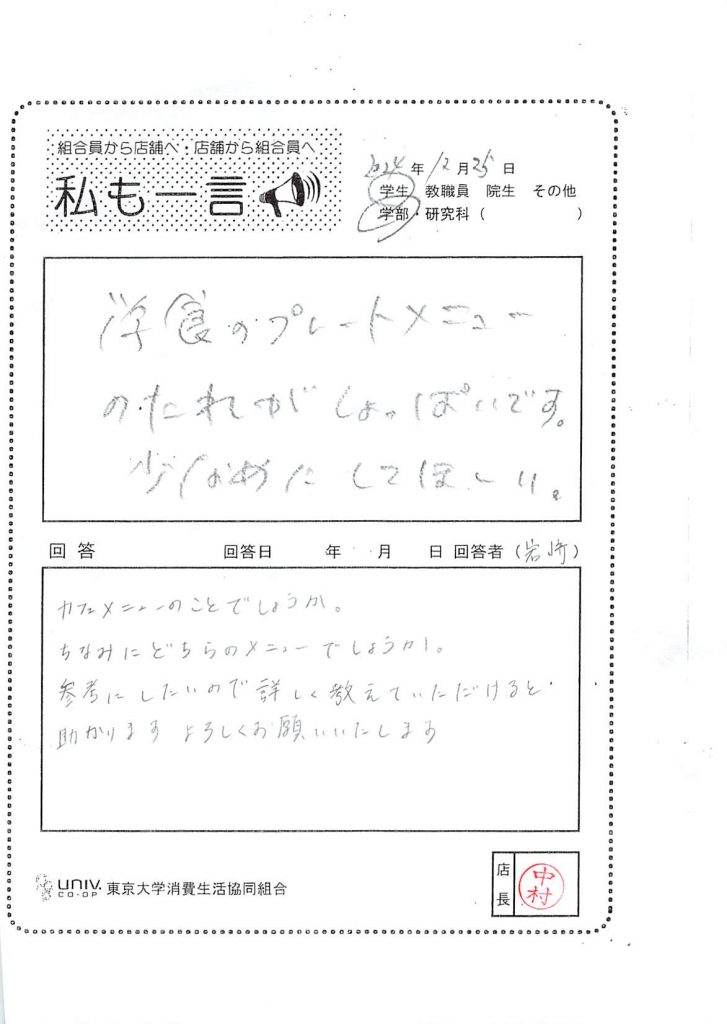 組合員から店舗へ・店舗から組合員へ
私も一言
2024年12月25日
学生 教職員 院生 その他
学部・研究科（ ）
洋食のプレートメニュー
のたれがしょっぱいです。
少なめにしてほしい。
回答 回答日 年 月 日 回答者（岩崎）
カフェメニューのことでしょうか。
ちなみにどちらのメニューでしょうか。
参考にしたいので詳しく教えていただけると
助かります よろしくお願いいたします
UNIV. CO-OP 東京大学消費生活協同組合
店長
中村